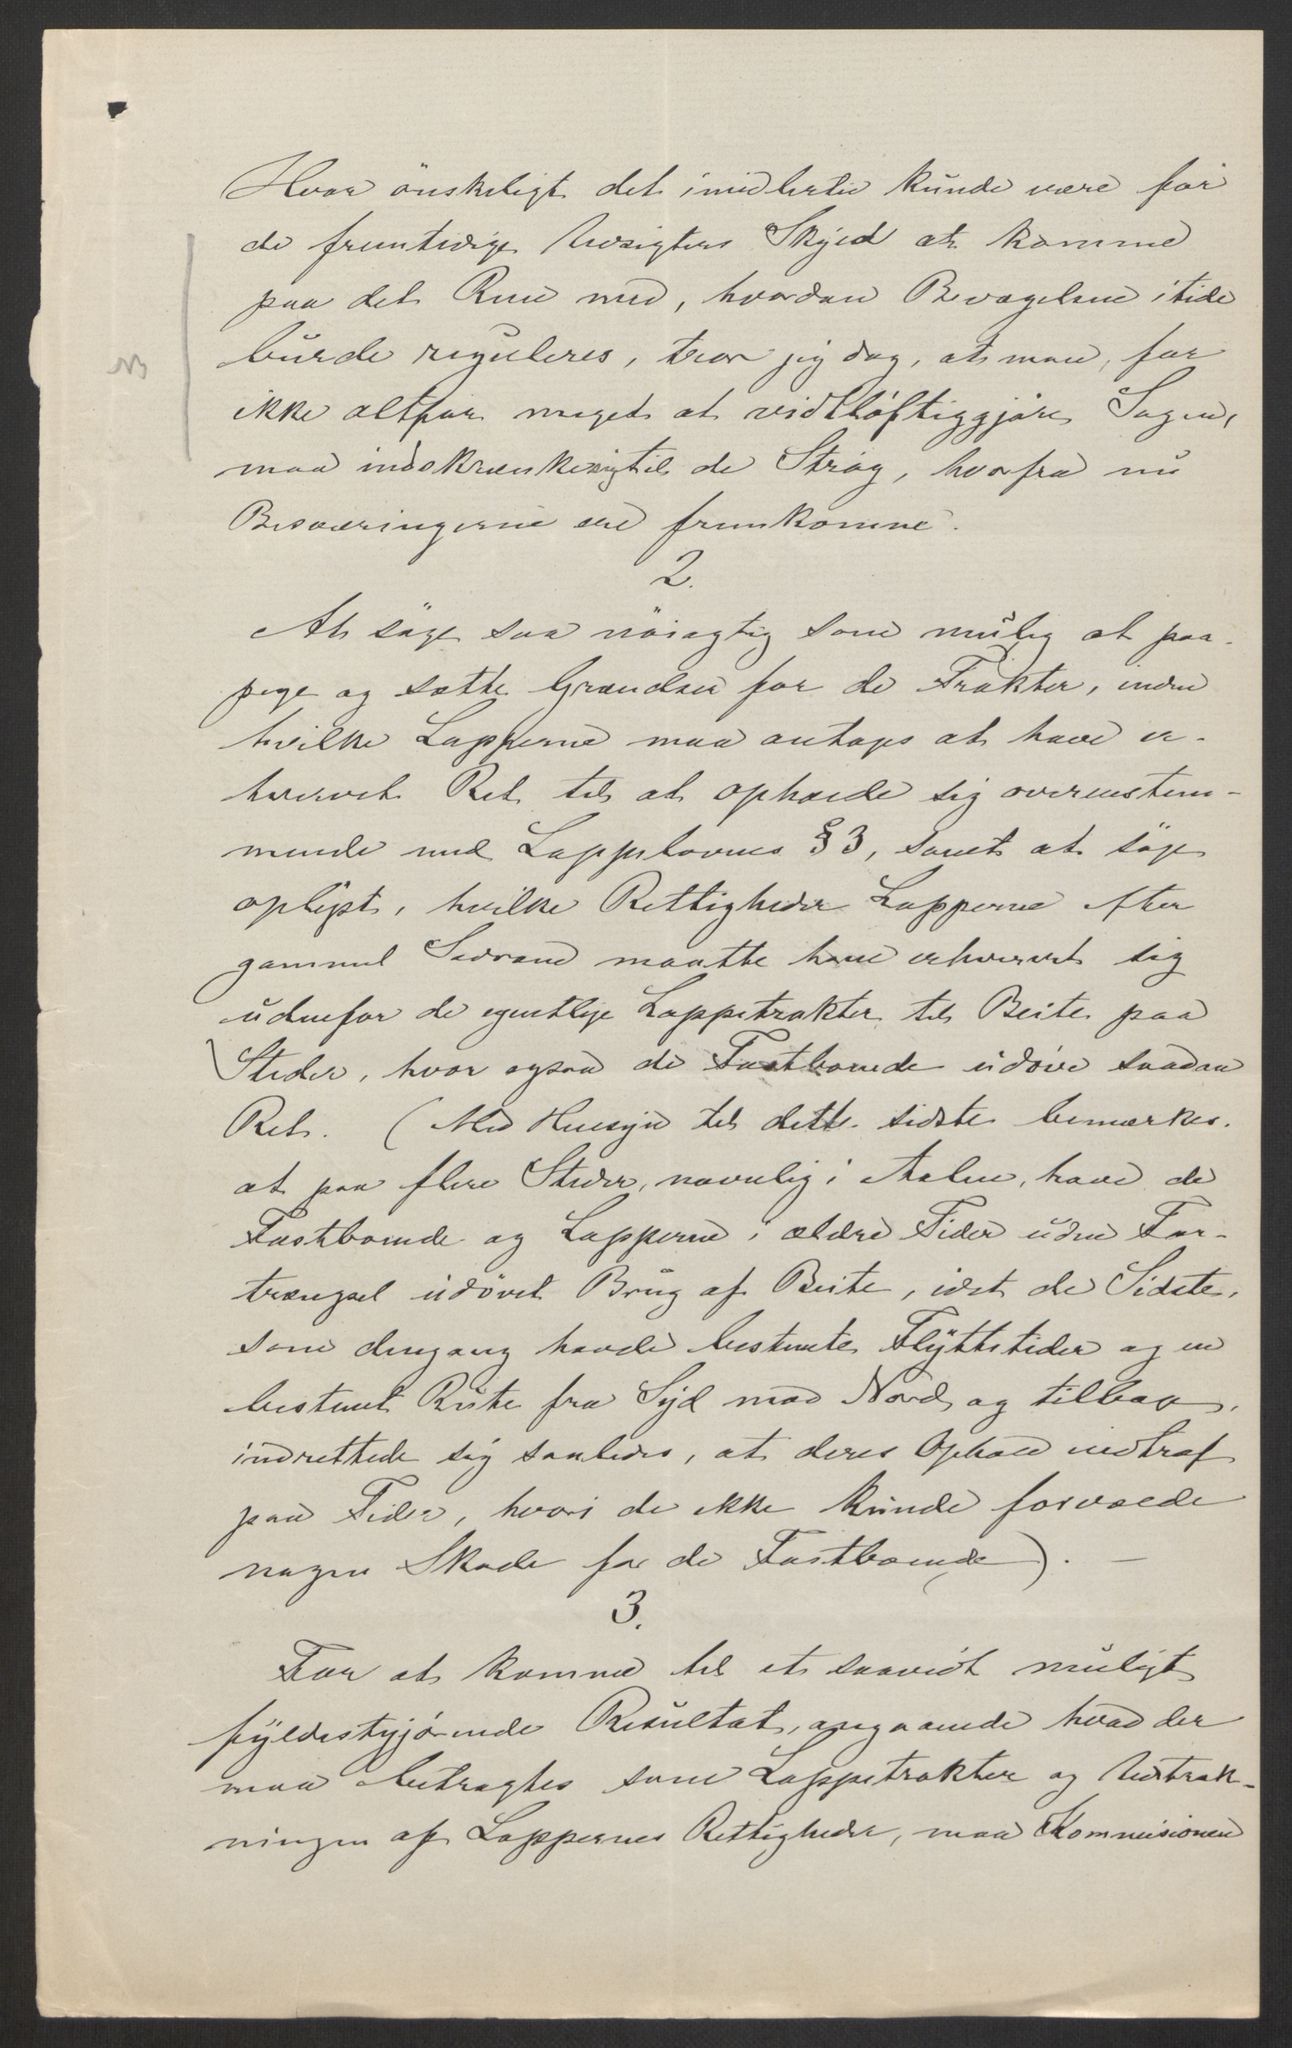 Hvor önskeligt det imidlertid kunde være for
de fremtidige Udsigters Skyld at komme
paa det Rene med, hvordan Bevægelsene itide
burde reguleres, tror jeg dog, at man, for
ikke altfor meget at vidtløftiggjøre Sagen,
maa indskrænke sig til de Strøg, hvorfra nu
Besværingerne ere fremkomne.
2.
At söge saa nöiagtig som mulig at paa-
pege og sætte Grændser for de Trakter, inden
hvilke Lapperne maa antages at have er-
hvervet Ret til at opholde sig overenstem-
mende med Lappelovens § 3, samt at söge
oplyst, hvilke Rettigheder Lapperne efter
gammel Sedvane maatte have erhvervet sig
udenfor de egentlige Lappetrakter til Beite paa
Steder, hvor ogsaa de Fastboende udöve saadan
Ret. (Med Hensyn til dette sidste bemærkes,
at paa flere Steder, navnlig i Aalen, have de
Fastboende og Lapperne i ældre Tider uden For-
trængsel udövet Brug af Beite, idet de Sidste,
som dengang havde bestemte Flyttetider og en
bestemt Rute fra Syd mod Nord og tilbage,
indrettede sig saaledes, at deres Ophold indtraf
paa Tider, hvori de ikke kunde forvolde
nogen Skade for de Fastboende). —
3.
For at komme til et saavidt muligt
fyldestgjørende Resultat, angaaende hvad der
maa betragtes som Lappetrakter og Udstræk-
ningen af Lappernes Rettigheder, maa Kommisionen
NB